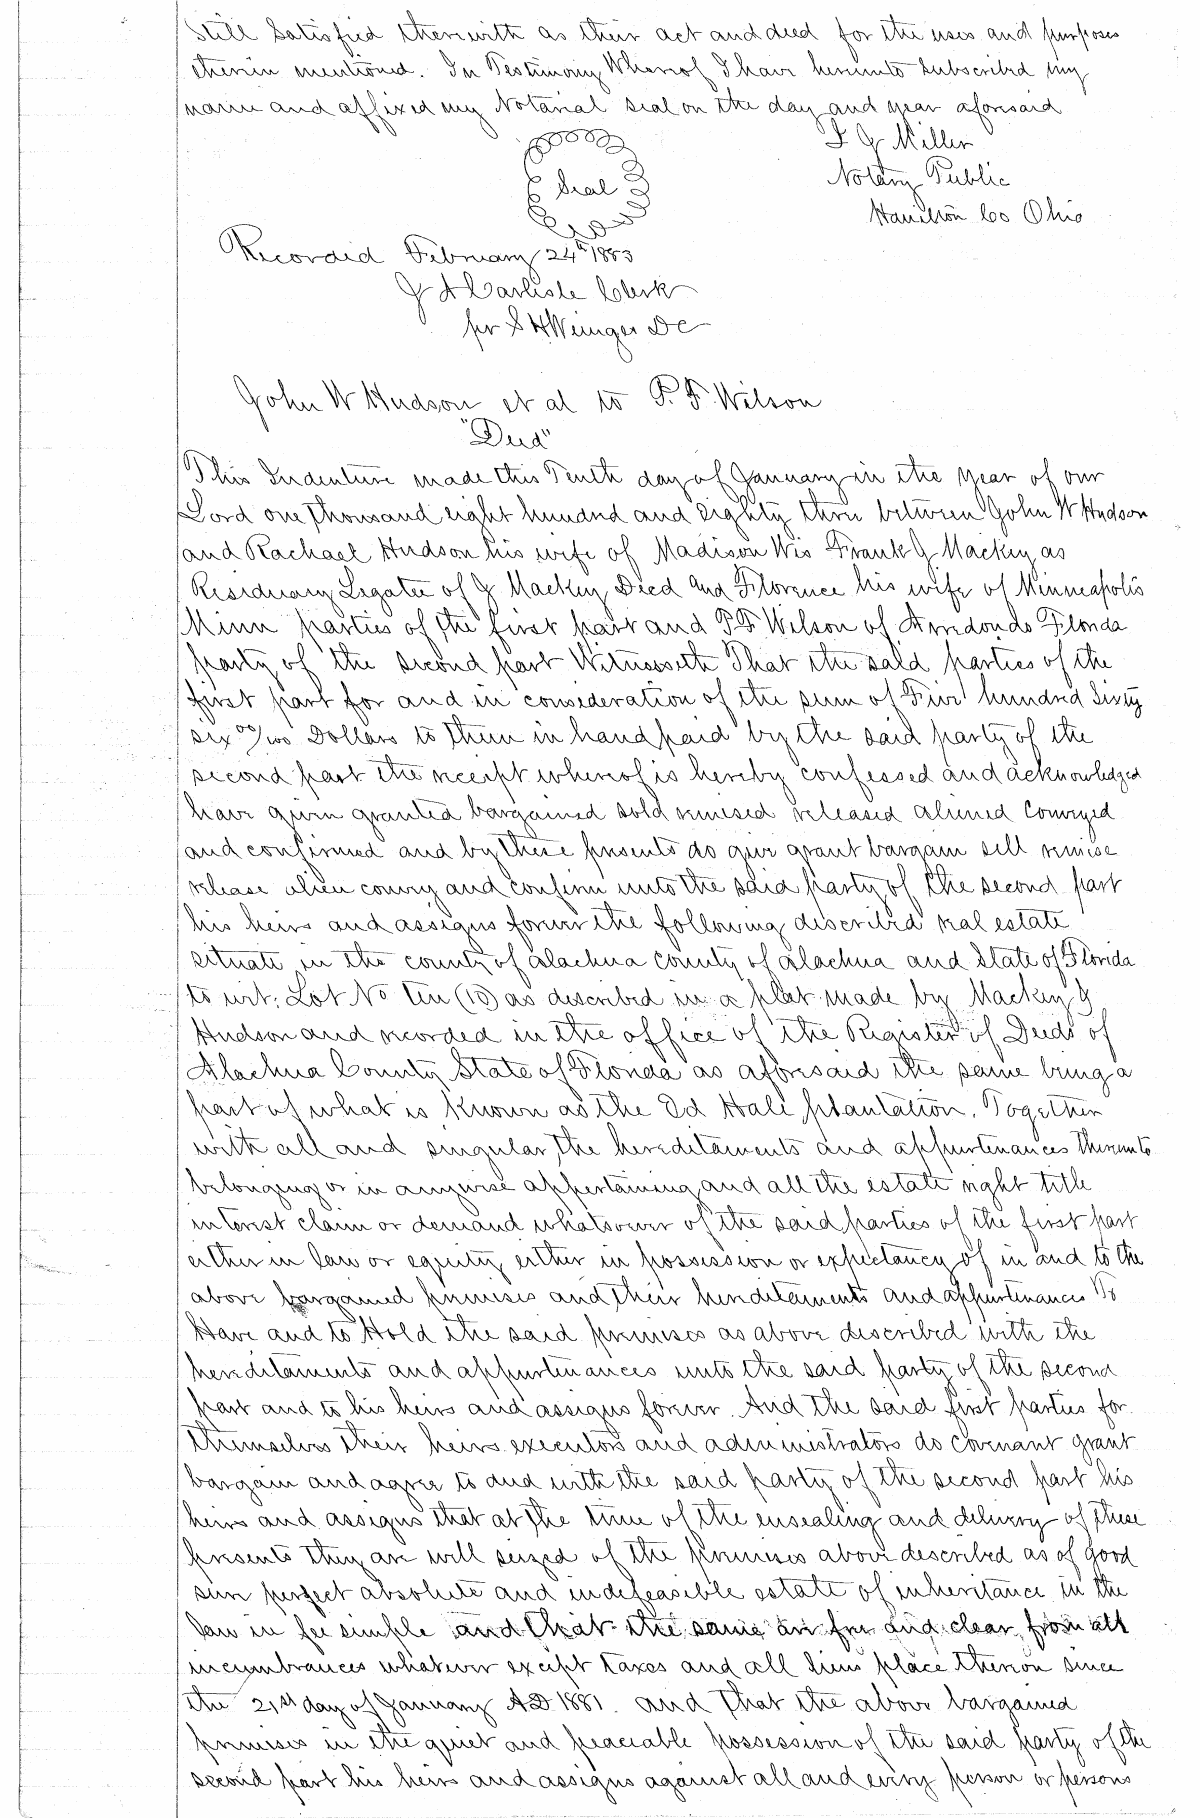 Still Satisfied therewith as their act and deed for the uses and purposes
therein mentioned. In Testimony Whereof I have hereunto subscribed my
name and affixed my Notarial seal on the day and year aforesaid
Miller
Seal
Notary Public
Hamilton Co Ohio
Recorded February 24th 1883
J A Carlisle Clerk
per S H Wienges DC
John W Hudson et al to P. F. Wilson
"Deed"
This Indenture made this Tenth day of January in the year of our
Lord one thousand eight hundred and Eighty three between John W Hudson
and Rachael Hudson his wife of Madison Wis Frank J Mackey as
Residuary Legatee of J Mackey Decd and Florence his wife of Minneapolis
Minn parties of the first part and P F Wilson of Arredondo Florida
party of the second part Witnesseth That the said parties of the
first part for and in consideration of the sum of Five hundred Sixty
six 00/100 Dollars to them in hand paid by the said party of the
second part the receipt whereof is hereby confessed and acknowledged
have given granted bargained sold remised released aliened Conveyed
and confirmed and by these presents do give grant bargain sell remise
release alien convey and confirm unto the said party of the second part
his heirs and assigns forever the following described real estate
situate in the county of Alachua county of Alachua and State of Florida
to wit: Lot No Ten (10) as described in a plat made by Mackey &
Hudson and recorded in the office of the Register of Deeds of
Alachua County State of Florida as aforesaid the same being a
part of what is known as the Ed Hale plantation. Together
with all and singular the hereditaments and appurtenances thereunto
belonging or in anywise appertaining and all the estate right title
interest claim or demand whatsoever of the said parties of the first part
either in law or equity either in possession or expectancy of in and to the
above bargained premises and their hereditaments and appurtenances To
Have and to Hold the said premises as above described with the
hereditaments and appurtenances unto the said party of the second
part and to his heirs and assigns forever. And the said first parties for
themselves their heirs executors and administrators do covenant grant
bargain and agree to and with the said party of the second part his
heirs and assigns that at the time of the ensealing and delivery of these
presents they are well seized of the premises above described as of good
sure perfect absolute and indefeasible estate of inheritance in the
law in fee simple and that the same are free and clear from all
incumbrances whatever except taxes and all liens place thereon since
the 21st day of January AD 1881. and that the above bargained
premises in the quiet and peaceable possession of the said party of the
second part his heirs and assigns against all and every person or persons